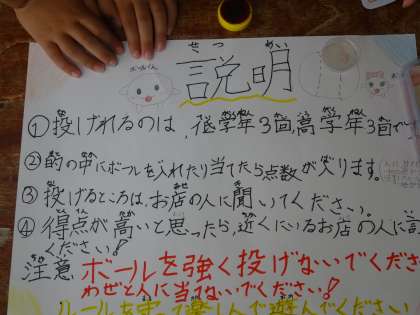 ボールくん
せつ めい
説明
①投げれるのは、低学年3回、高学年3回で
②的の中にボールを入れたり当てたら点数が入ります。
③投げるところは、お店の人に聞いてください。
④得点が高いと思ったら、近くにいるお店の人に
ください!
注意 ボールを強く投げないでくださ
わざと人に当てないでください!
ルールを守って楽しんで遊んでください